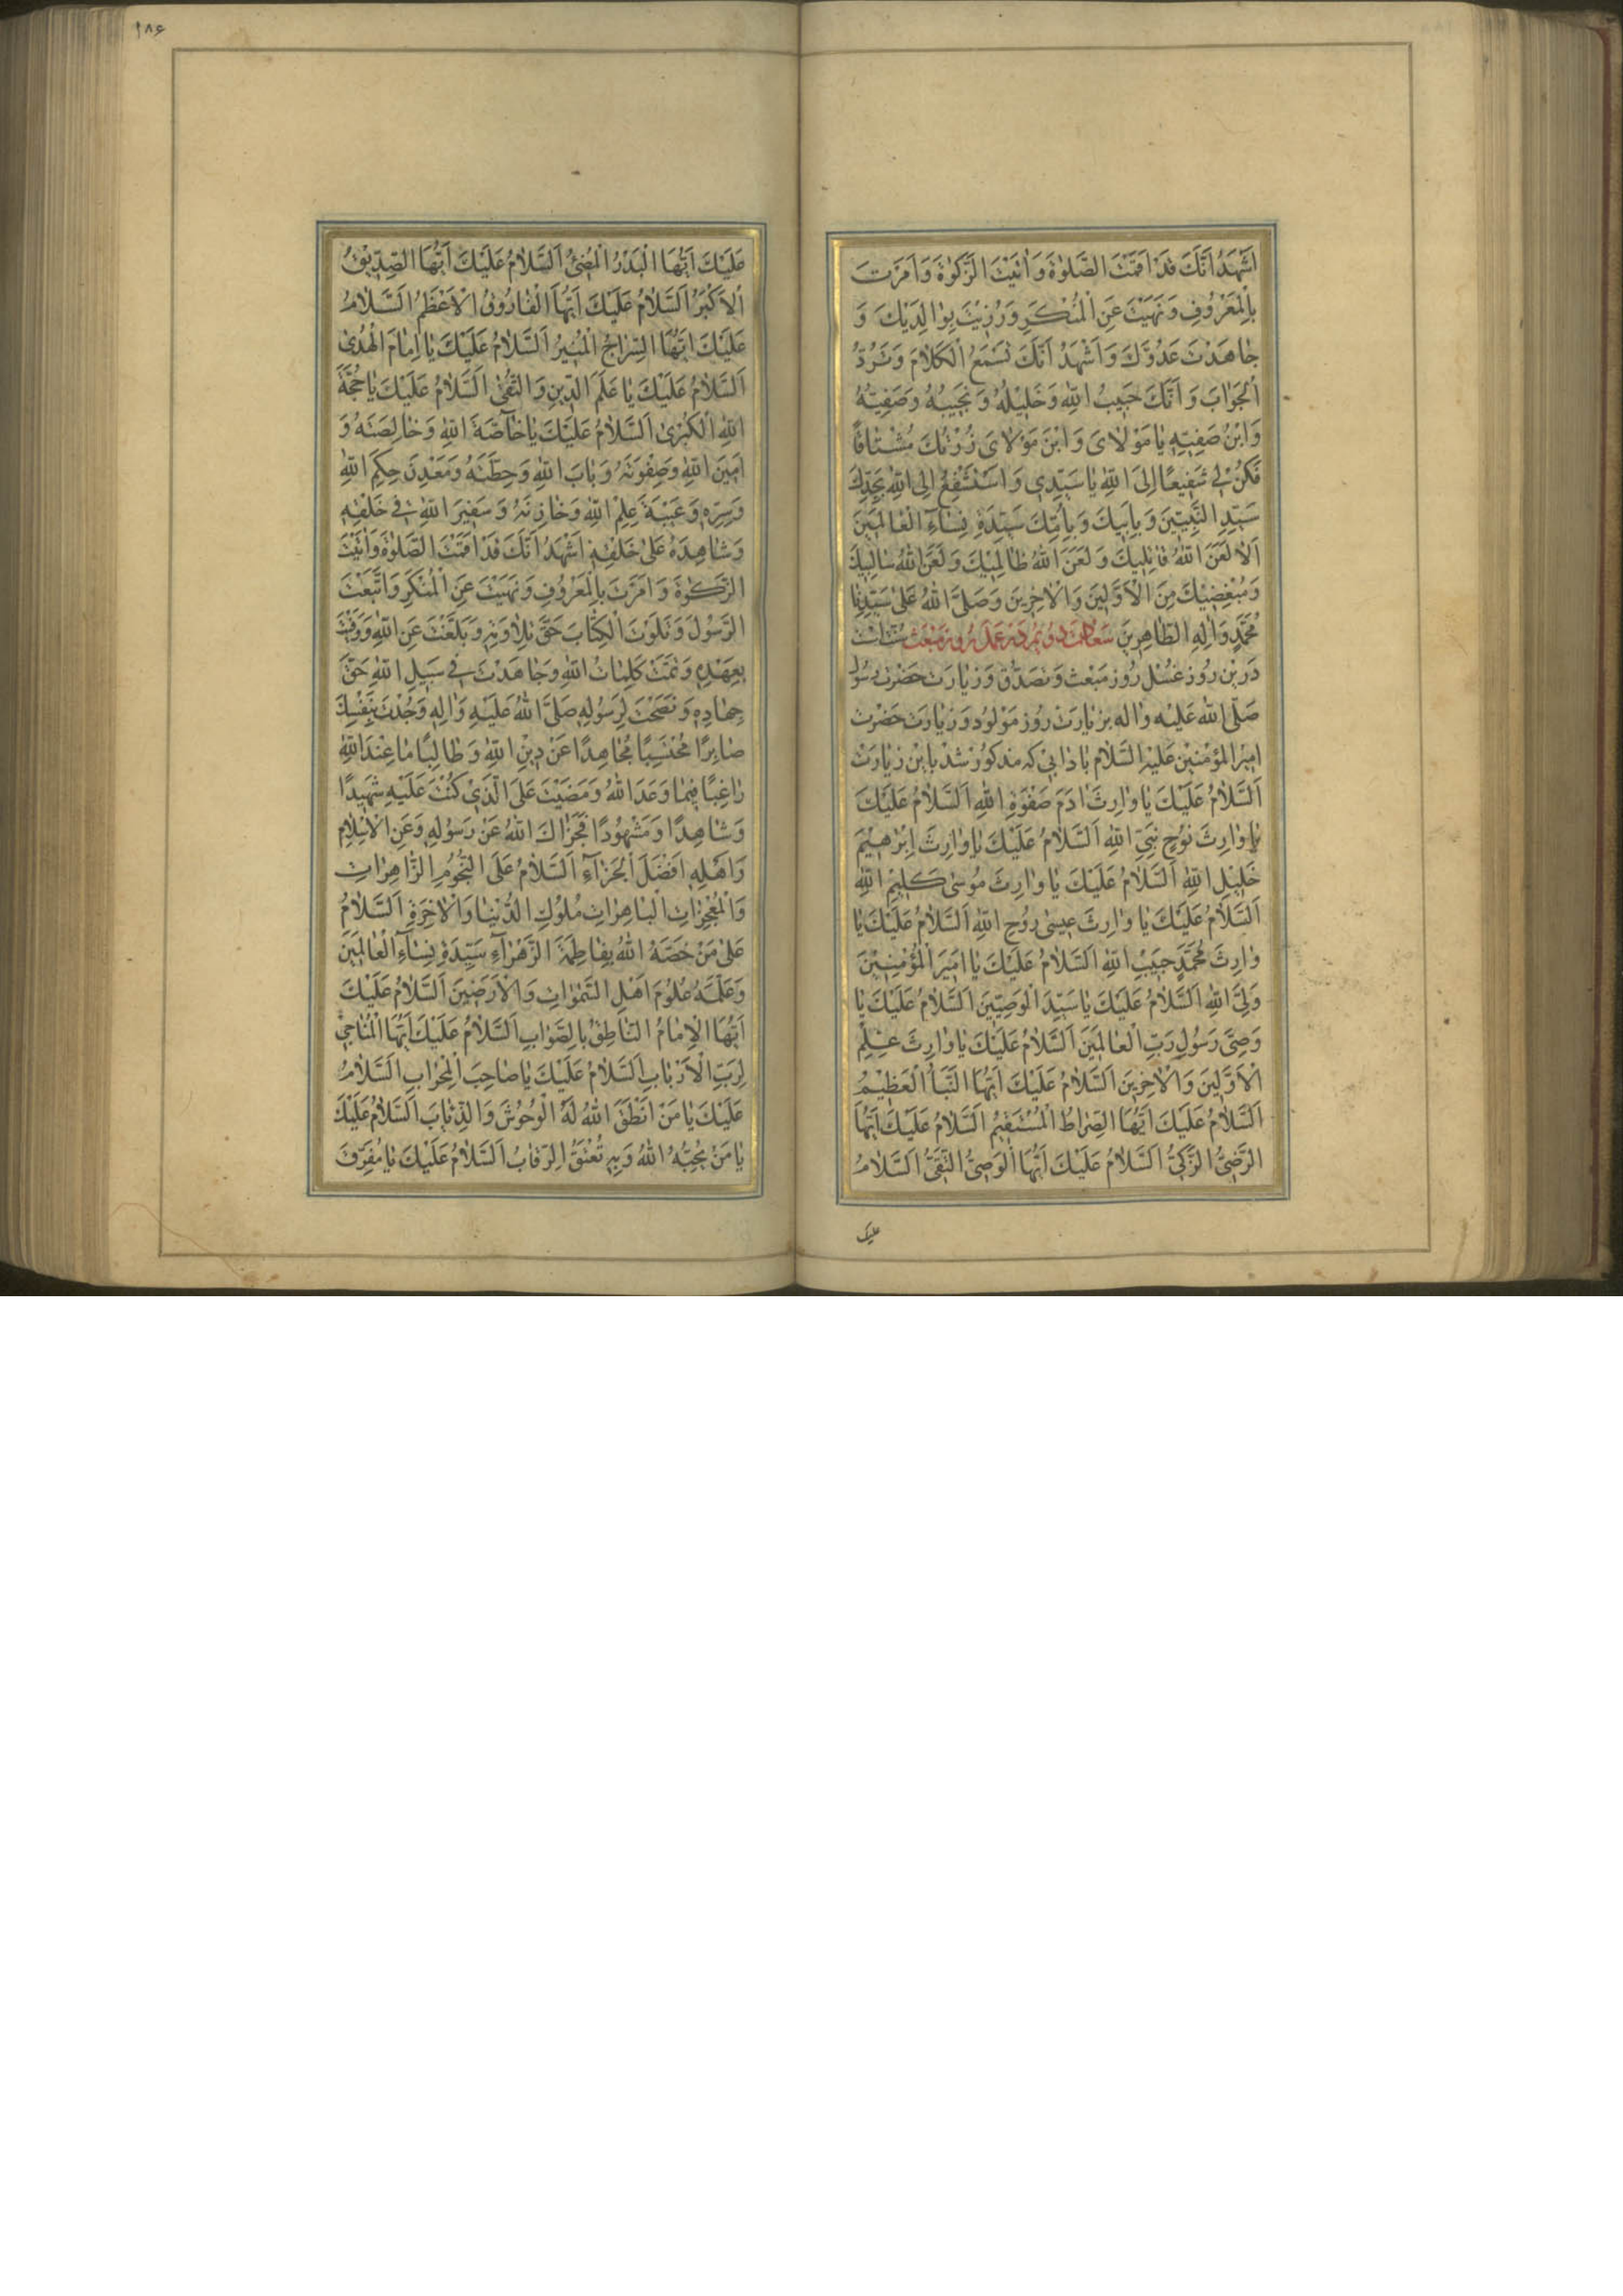 اَشْهَدُ اَنَّكَ قَدْ اَقَمْتَ الصَّلوٰةَ وَ اٰتَيْتَ الزَّكوٰةَ وَ اَمَرْتَ
بِالْمَعْرُوفِ وَ نَهَيْتَ عَنِ الْمُنْكَرِ وَ رُزِئْتَ بِوٰالِدَيْكَ وَ
جٰاهَدْتَ عَدُوَّكَ وَ اَشْهَدُ اَنَّكَ تَسْمَعُ الْكَلٰامَ وَ تَرُدُّ
الْجَوٰابَ وَ اَنَّكَ حَبِيبُ اللّٰهِ وَ خَلِيلُهُ وَ نَجِيبُهُ وَ صَفِيُّهُ
وَ ابْنُ صَفِيِّهِ يٰا مَوْلٰاىَ وَ ابْنَ مَوْلٰاىَ زُرْتُكَ مُشْتٰاقًا
فَكُنْ لِي شَفِيعًا اِلَى اللّٰهِ يٰا سَيِّدِي وَ اَسْتَشْفِعُ اِلَى اللّٰهِ بِجَدِّكَ
سَيِّدِ النَّبِيّينَ وَ بِاَبِيكَ وَ بِاُمِّكَ سَيِّدَةِ نِسٰاءِ الْعٰالَمِينَ
اَلٰا لَعَنَ اللّٰهُ قٰاتِلِيكَ وَ لَعَنَ اللّٰهُ ظٰالِمِيْكَ وَ لَعَنَ اللّٰهُ سٰالِبِيكَ
وَ مُبْغِضِيْكَ مِنَ الْاَوَّلِينَ وَ الْاٰخِرِينَ وَ صَلَّى اللّٰهُ عَلىٰ سَيِّدِنٰا
مُحَمَّدٍ وَ اٰلِهِ الطّٰاهِرِينَ سعادت دويم در عمل روز مبعث
درين روز غسل روز مبعث و تصدق و زيارت حضرت رسول
صَلَّى اللّٰه عَلَيه واٰله بزيارت روز مولود و زيارت حضرت
امير المؤمنين عليه السّلام بادابى كه مذكور شد باين زيارت
اَلسَّلٰامُ عَلَيْكَ يٰا وٰارِثَ اٰدَمَ صَفْوَةِ اللّٰهِ اَلسَّلٰامُ عَلَيْكَ
يٰا وٰارِثَ نُوحٍ نَبِيِّ اللّٰهِ اَلسَّلٰامُ عَلَيْكَ يٰا وٰارِثَ اِبْرٰهِيْمَ
خَلِيلِ اللّٰهِ اَلسَّلٰامُ عَلَيْكَ يٰا وٰارِثَ مُوسىٰ كَلِيمِ اللّٰهِ
اَلسَّلٰامُ عَلَيْكَ يٰا وٰارِثَ عيسىٰ رُوحِ اللّٰهِ اَلسَّلٰامُ عَلَيْكَ يٰا
وٰارِثَ مُحَمَّدٍ حَبِيبِ اللّٰهِ اَلسَّلٰامُ عَلَيْكَ يٰا اَمِيرَ الْمُؤْمِنِيْنَ
وَلِيَّ اللّٰهِ اَلسَّلٰامُ عَلَيْكَ يٰا سَيِّدَ الْوَصِيّينَ اَلسَّلٰامُ عَلَيْكَ يٰا
وَصِيَّ رَسُولِ رَبِّ الْعٰالَمِينَ اَلسَّلٰامُ عَلَيْكَ يٰا وٰارِثَ عِلْمِ
الْاَوَّلِينَ وَ الْاٰخِرِينَ اَلسَّلٰامُ عَلَيْكَ اَيُّهَا النَّبَأُ الْعَظِيمُ
اَلسَّلٰامُ عَلَيْكَ اَيُّهَا الصِّرٰاطُ الْمُسْتَقِيمُ اَلسَّلٰامُ عَلَيْكَ اَيُّهَا
الرَّضِيُّ الزَّكِيُّ اَلسَّلٰامُ عَلَيْكَ اَيُّهَا الْوَصِيُّ التَّقِيُّ اَلسَّلٰامُ
عليك
١٨۶
عَلَيْكَ اَيُّهَا الْبَدْرُ الْمُضِيءُ اَلسَّلٰامُ عَلَيْكَ اَيُّهَا الصِّدِّيقُ
الْاَكْبَرُ اَلسَّلٰامُ عَلَيْكَ اَيُّهَا الْفٰارُوقُ الْاَعْظَمُ اَلسَّلٰامُ
عَلَيْكَ اَيُّهَا السِّرٰاجُ الْمُنِيرُ اَلسَّلٰامُ عَلَيْكَ يٰا اِمٰامَ الْهُدىٰ
اَلسَّلٰامُ عَلَيْكَ يٰا عَلَمَ الدِّينِ وَ التُّقىٰ اَلسَّلٰامُ عَلَيْكَ يٰا حُجَّةَ
اللّٰهِ الْكُبْرىٰ اَلسَّلٰامُ عَلَيْكَ يٰا خٰاصَّةَ اللّٰهِ وَ خٰالِصَتَهُ وَ
اَمِينَ اللّٰهِ وَ صَفْوَتَهُ وَ بٰابَ اللّٰهِ وَ حِطَّتَهُ وَ مَعْدِنَ حِكَمِ اللّٰهِ
وَ سِرِّهِ وَ عَيْبَةَ عِلْمِ اللّٰهِ وَ خٰازِنَهُ وَ سَفِيرَ اللّٰهِ فِي خَلْقِهِ
وَ شٰاهِدَهُ عَلىٰ خَلْقِهِ اَشْهَدُ اَنَّكَ قَدْ اَقَمْتَ الصَّلوٰةَ وَ اٰتَيْتَ
الزَّكوٰةَ وَ اَمَرْتَ بِالْمَعْرُوفِ وَ نَهَيْتَ عَنِ الْمُنْكَرِ وَ اتَّبَعْتَ
الرَّسُولَ وَ تَلَوْتَ الْكِتٰابَ حَقَّ تِلٰاوَتِهِ وَ بَلَّغْتَ عَنِ اللّٰهِ وَ وَفَيْتَ
بِعَهْدِهِ وَ تَمَّتْ كَلِمٰاتُ اللّٰهِ وَ جٰاهَدْتَ فِي سَبِيلِ اللّٰهِ حَقَّ
جِهٰادِهِ وَ نَصَحْتَ لِرَسُولِهِ صَلَّى اللّٰهُ عَلَيْهِ وَ اٰلِهِ وَ جُدْتَ بِنَفْسِكَ
صٰابِرًا مُحْتَسِبًا مُجٰاهِدًا عَنْ دِينِ اللّٰهِ وَ طٰالِبًا مٰا عِنْدَ اللّٰهِ
رٰاغِبًا فِيمٰا وَعَدَ اللّٰهُ وَ مَضَيْتَ عَلَى الَّذِي كُنْتَ عَلَيْهِ شَهِيدًا
وَ شٰاهِدًا وَ مَشْهُودًا فَجَزٰاكَ اللّٰهُ عَنْ رَسُولِهِ وَ عَنِ الْاِسْلٰامِ
وَ اَهْلِهِ اَفْضَلَ الْجَزٰاءِ اَلسَّلٰامُ عَلَى النُّجُومِ الزّٰاهِرٰاتِ
وَ الْمُعْجِزٰاتِ الْبٰاهِرٰاتِ مُلُوكِ الدُّنْيٰا وَ الْاٰخِرَةِ اَلسَّلٰامُ
عَلىٰ مَنْ خَصَّهُ اللّٰهُ بِفٰاطِمَةَ الزَّهْرٰاءِ سَيِّدَةِ نِسٰاءِ الْعٰالَمِينَ
وَ عَلَّمَهُ عُلُومَ اَهْلِ السَّمٰوٰاتِ وَ الْاَرَضِينَ اَلسَّلٰامُ عَلَيْكَ
اَيُّهَا الْاِمٰامُ النّٰاطِقُ بِالصَّوٰابِ اَلسَّلٰامُ عَلَيْكَ اَيُّهَا الْمُنٰاجِي
لِرَبِّ الْاَرْبٰابِ اَلسَّلٰامُ عَلَيْكَ يٰا صٰاحِبَ الْمِحْرٰابِ اَلسَّلٰامُ
عَلَيْكَ يٰا مَنْ اَنْطَقَ اللّٰهُ لَهُ الْوُحُوشَ وَ الذِّئٰابَ اَلسَّلٰامُ عَلَيْكَ
يٰا مَنْ يُحِبُّهُ اللّٰهُ وَ بِهِ تُعْتَقُ الرِّقٰابُ اَلسَّلٰامُ عَلَيْكَ يٰا مُفَرِّقَ